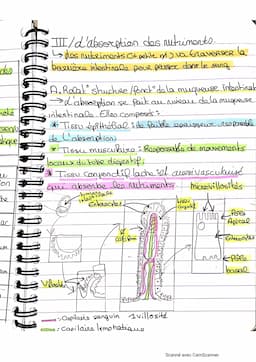 III/ L'absorption des nutriments.
↳ les nutriments (+ petite m) va traverser la
barrière intestinale pour passer dans le sang
A. Relat° structure/fonct° de la muqueuse intestinale
→ L'absorption se fait au niveau de la muqueuse
intestinale. Elle composée :
* Tissu épithélial : de faible épaisseur responsable
de l'absorption
* Tissu musculaire : Responsable de mouvements
locaux du tube digestif.
* Tissu conjonctif lâche : vascularisé
qui absorbe les nutriments
Microvillosités
Entérocytes
Pôle
Apical
Entérocyte
Pôle
basal
Villosité
: Capilaire sanguin 1 villosité
: Capilaire lymphatique
Scanné avec CamScanner